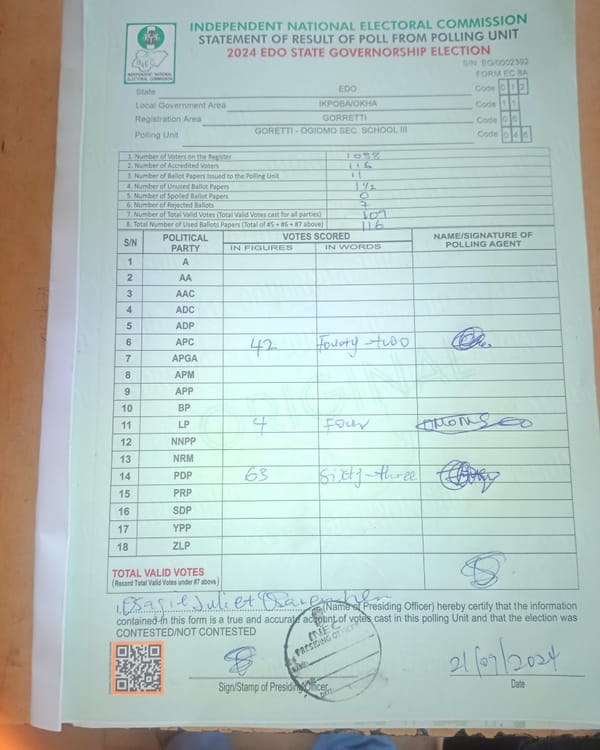 INDEPENDENT NATIONAL ELECTORAL COMMISSION
STATEMENT OF RESULT OF POLL FROM POLLING UNIT
2024 EDO STATE GOVERNORSHIP ELECTION
INEC
INDEPENDENT NATIONAL ELECTORAL COMMISSION
S/N: EG/0002392
FORM EC 8A
State EDO Code 0 1 2
Local Government Area IKPOBA/OKHA Code 1 1
Registration Area GORRETTI Code 0 6
Polling Unit GORETTI - OGIOMO SEC. SCHOOL III Code 0 4 6
1. Number of Voters on the Register 1088
2. Number of Accredited Voters 116
3. Number of Ballot Papers Issued to the Polling Unit
4. Number of Unused Ballot Papers
5. Number of Spoiled Ballot Papers 0
6. Number of Rejected Ballots 7
7. Number of Total Valid Votes (Total Valid Votes cast for all parties) 109
8. Total Number of Used Ballots Papers (Total of #5 + #6 + #7 above) 116
S/N POLITICAL PARTY VOTES SCORED NAME/SIGNATURE OF POLLING AGENT
IN FIGURES IN WORDS
1 A
2 AA
3 AAC
4 ADC
5 ADP
6 APC 42 Fourty-two
7 APGA
8 APM
9 APP
10 BP
11 LP 4 Four
12 NNPP
13 NRM
14 PDP 63 Sixty-three
15 PRP
16 SDP
17 YPP
18 ZLP
TOTAL VALID VOTES
(Record Total Valid Votes under #7 above)
I, Osagie Juliet (Name of Presiding Officer) hereby certify that the information
contained in this form is a true and accurate account of votes cast in this polling Unit and that the election was
CONTESTED/NOT CONTESTED
INEC
PRESIDING OFFICER
21/09/2024
Sign/Stamp of Presiding Officer Date
ORIGINAL